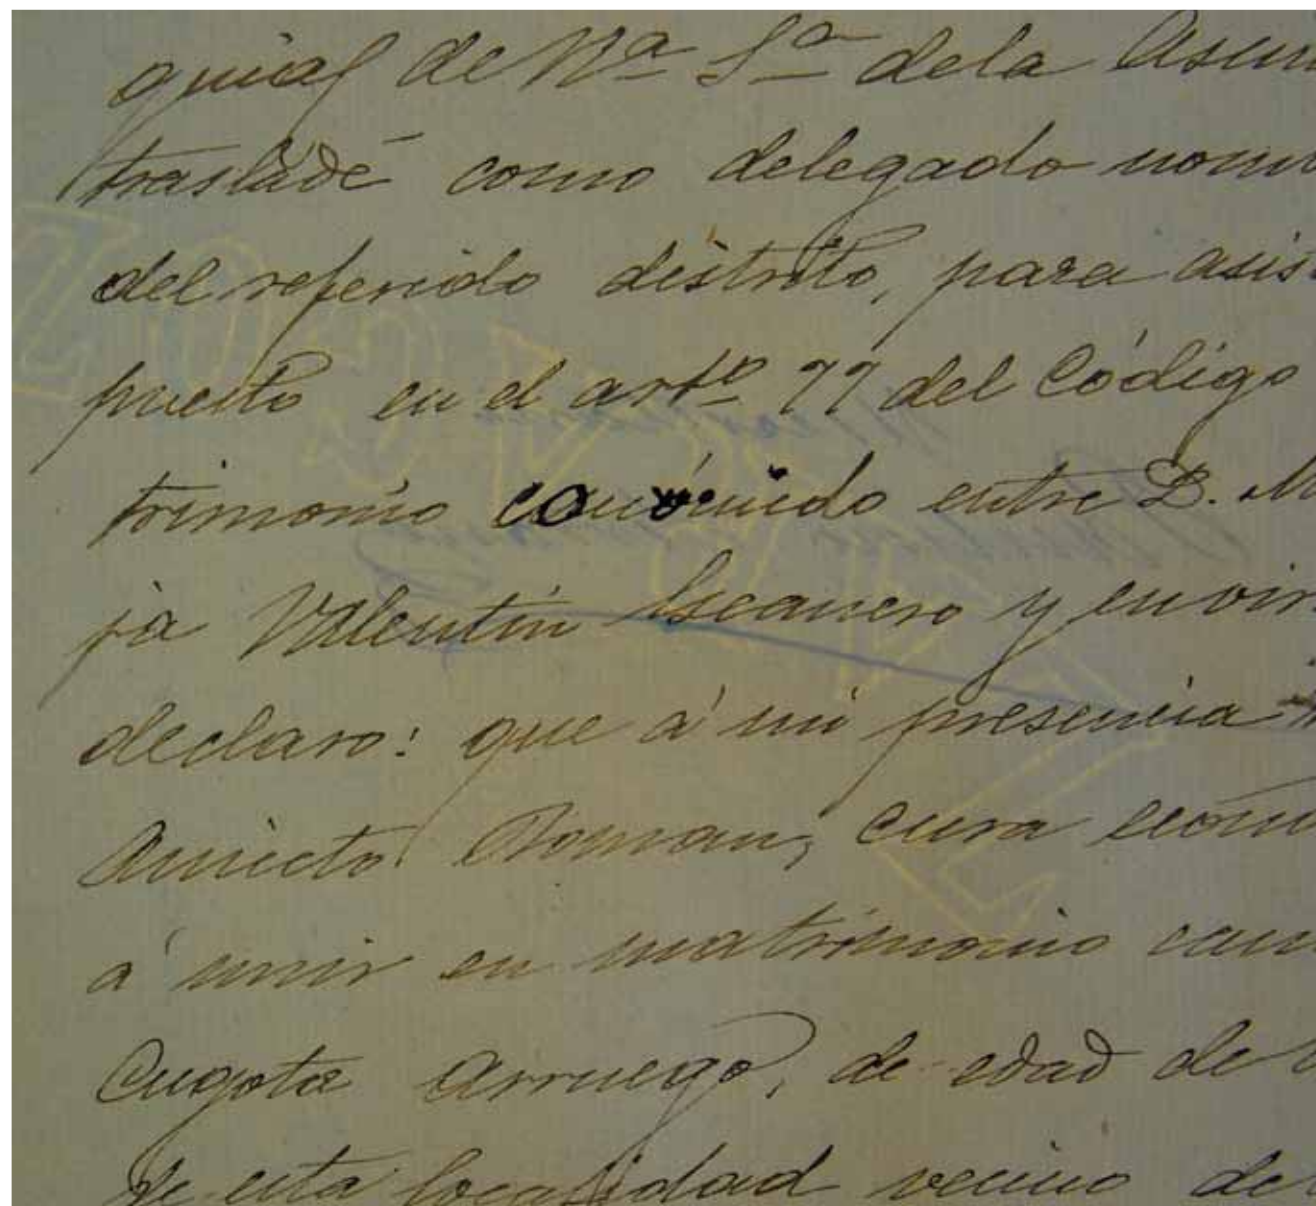 quial de Nª Sª de la Asun
trasladé como delegado nom
del referido distrito, para asis
puesto en el artº 77 del Código
trimonio canónico entre D. M
ja Valentín y en vir
declaro: que á mi presencia
Aniceto Roman, cura ecónom
á unir en matrimonio can
Arruego, de edad de
de esta localidad vecino de